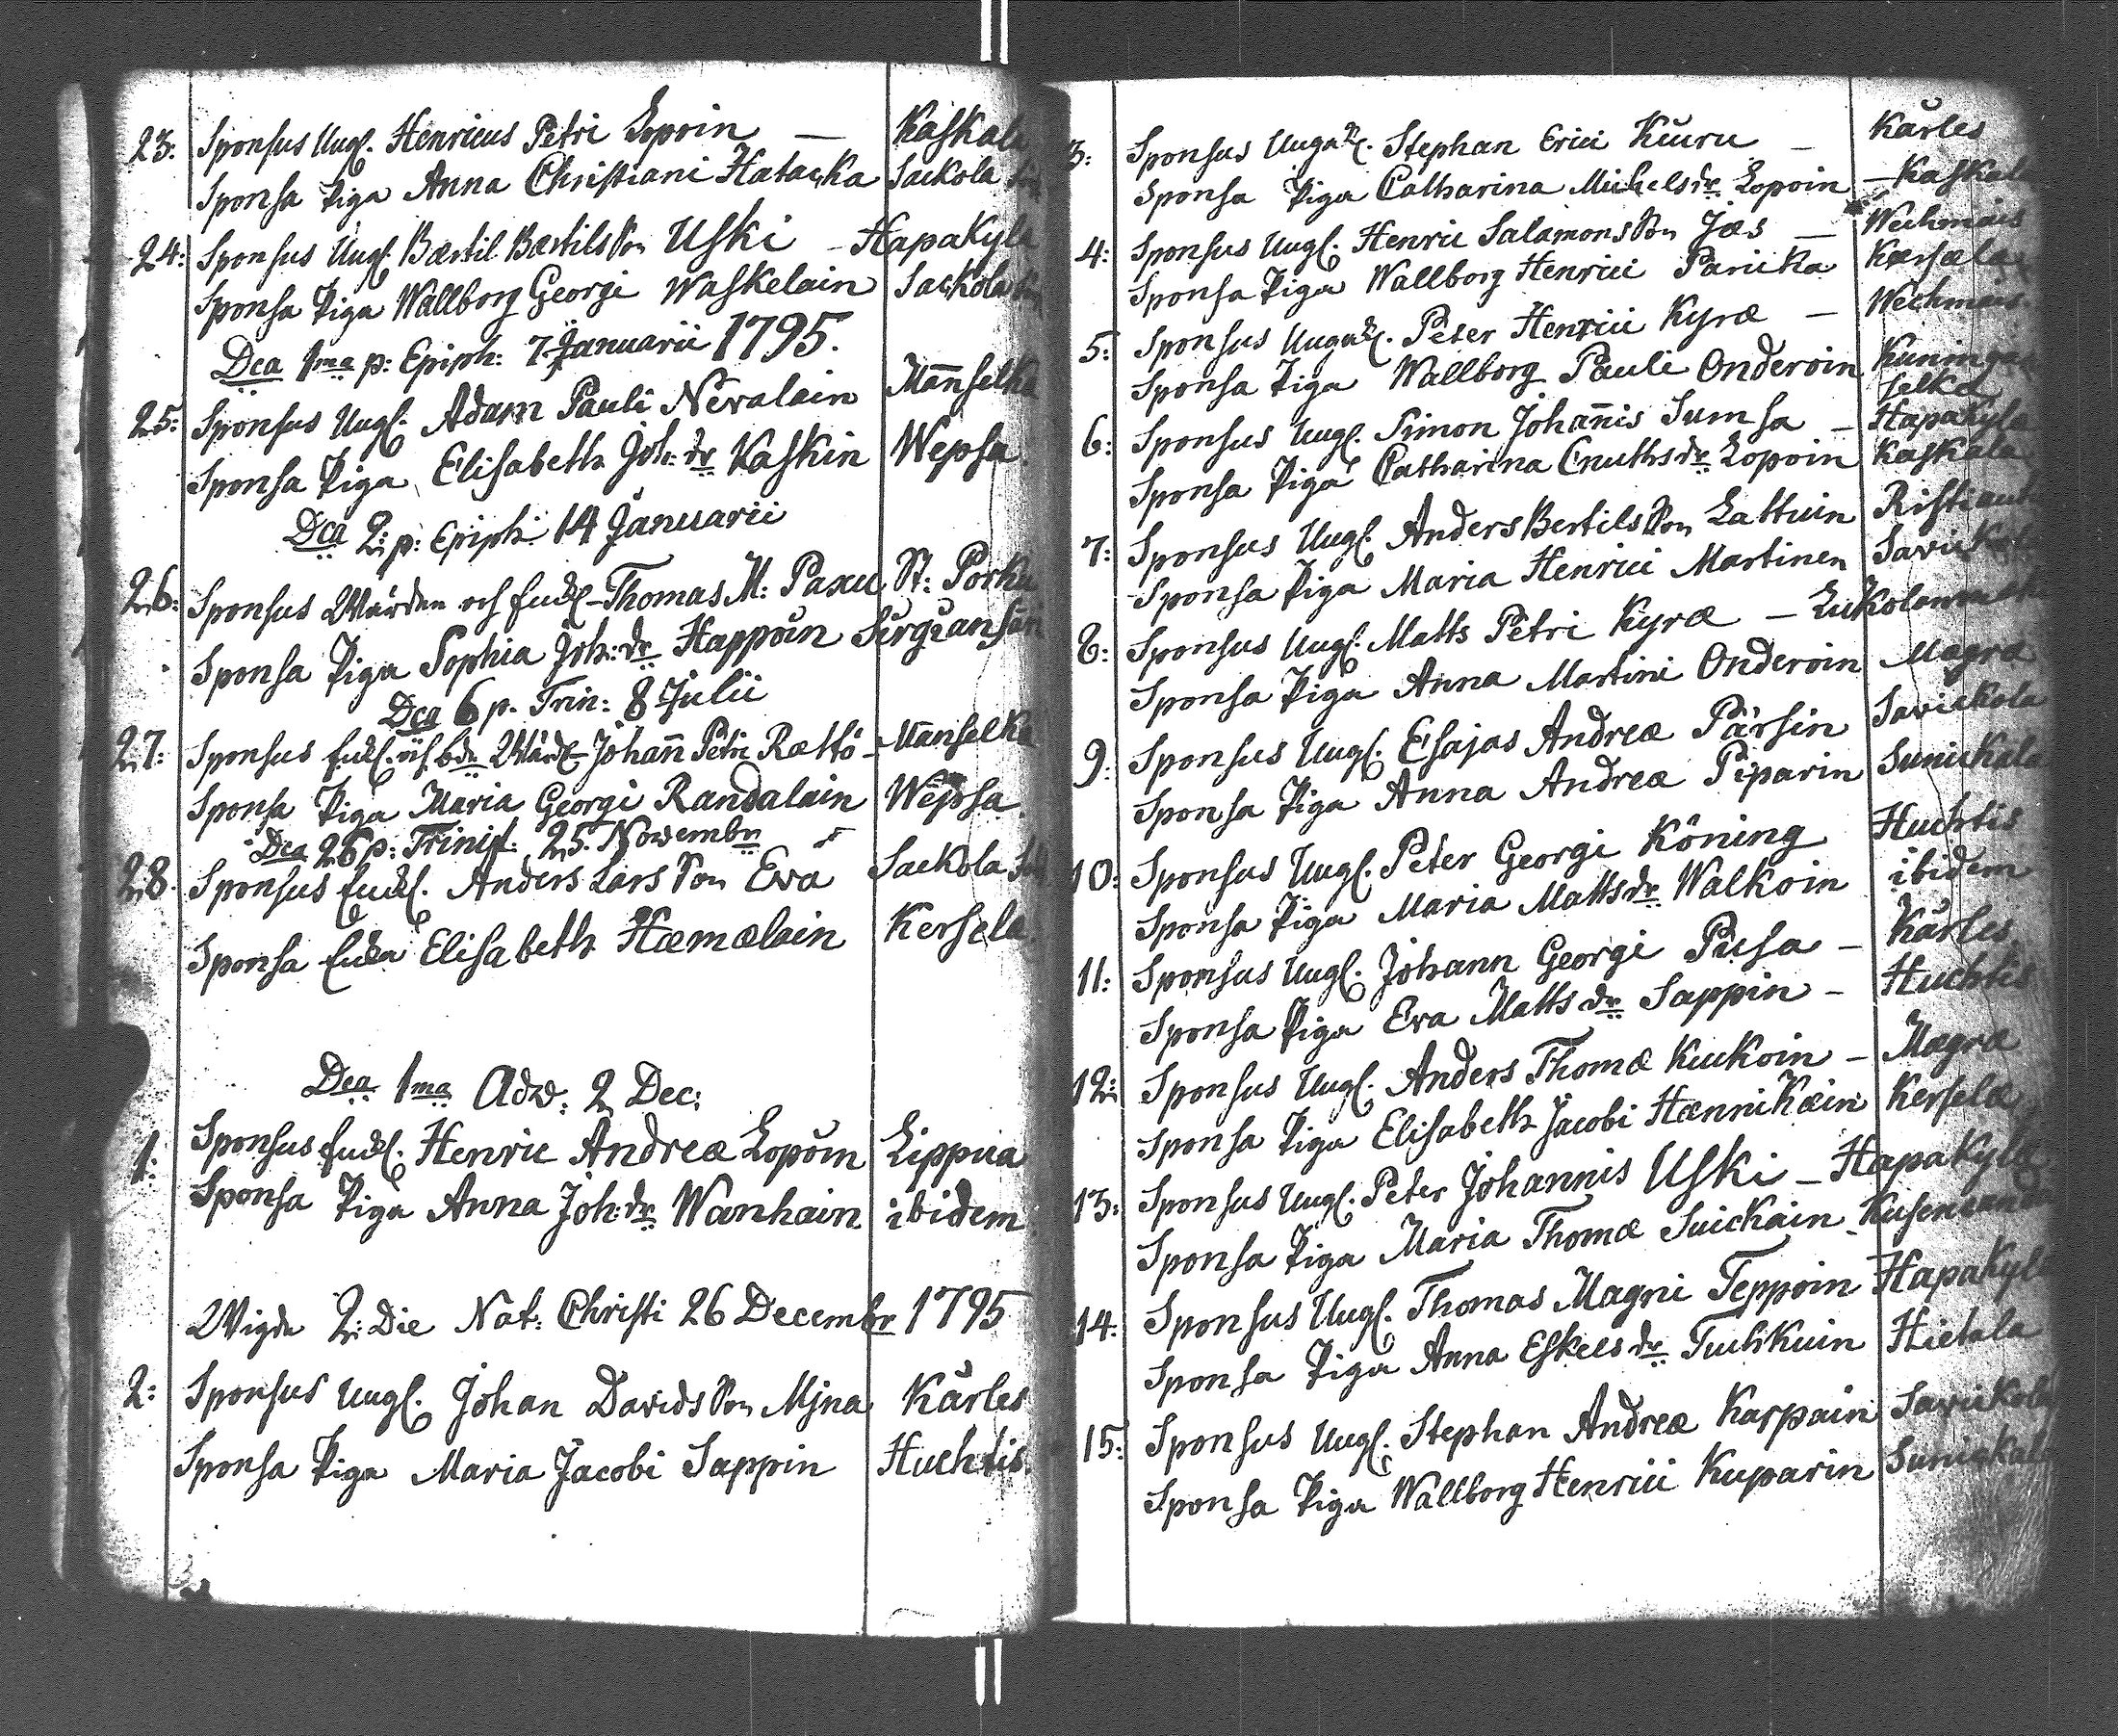 23: Sponsus Ungk. Henricus Petri Lopoin — Kaskala
Sponsa Piga Anna Christiani Hatacka Sackola
24: Sponsus Ungk. Bærtil Bærtils Son Uski – Hapakylä
Sponsa Piga Wallborg Georgi Waskelain Sackola
Dca 1ma p: Epiph: 7 Januarii 1795.
25: Sponsus Ungk. Adam Pauli Nevalain Mañselkä
Sponsa Piga Elisabeth Joh: dr Kaskin Wepsa
Dca 2: p: Epiph: 14 Januarii
26: Sponsus och Enckl. Thomas M: Paxu St: Porku
Sponsa Piga Sophia Joh: dr Happoin
Dca 6 p. Trin: 8 Julii
27: Sponsus Enkl. Johañ Petri Rættö – Mañselkä
Sponsa Piga Maria Georgi Randalain Wepsa
Dca 26 p: Trinit. 25. Novembr
28. Sponsus Enkl. Anders Lars Son Eva Sackola
Sponsa Enka Elisabeth Hæmælain Kersela
Dca 1ma Adv: 2 Dec:
1: Sponsus Enkl. Henric Andreæ Lopoin Lippua
Sponsa Piga Anna Joh: dr Wanhain ibidem
Wigde 2: Die Nat: Christi 26 Decembr 1795
2: Sponsus Ungk. Johan Davids Son Mjna Kärles
Sponsa Piga Maria Jacobi Sappin Huchtis.
3: Sponsus Ungk. Stephan Erici Kiuru – Kärles
Sponsa Piga Catharina Michels dr Lopoin – Kaskala
4: Sponsus Ungk. Henric Salamons Son Jæs — Wechmais
Sponsa Piga Wallborg Henrici Paricka Kærsæla
5: Sponsus Ungk. Peter Henrici Kyræ – Wechmais
Sponsa Piga Wallborg Pauli Onderoin Kuningan
selkä
6: Sponsus Ungk. Simon Johañis Sumsa – Hapakyla
Sponsa Piga Catharina Cnuths dr Lopoin Kaskala
7: Sponsus Ungk. Anders Bertils Son Lattuin
Sponsa Piga Maria Henrici Martinen Savickola
8: Sponsus Ungk. Matts Petri Kyræ –
Sponsa Piga Anna Martini Onderoin Magra
9: Sponsus Ungk. Esajas Andreæ Pärsin Savickola
Sponsa Piga Anna Andreæ Piparin Sunickala
10: Sponsus Ungk. Peter Georgi Köning Huchtis
Sponsa Piga Maria Matts dr Walkoin ibidem
11: Sponsus Ungk. Johann Georgi Pusa – Kärles
Sponsa Piga Eva Matts dr Sappin – Huchtis
12: Sponsus Ungk. Anders Thomæ Kuckoin – Magra
Sponsa Piga Elisabeth Jacobi Hænnikæin Kerselæ
13: Sponsus Ungk. Peter Johannis Uski – Hapakylä
Sponsa Piga Maria Thomæ Suickain –
14: Sponsus Ungk. Thomas Magni Teppoin Hapakylä
Sponsa Piga Anna Eskels dr Tuchkuin Hietala
15: Sponsus Ungk. Stephan Andreæ Karpain Savickola
Sponsa Piga Wallborg Henrici Kuparin Sunickala